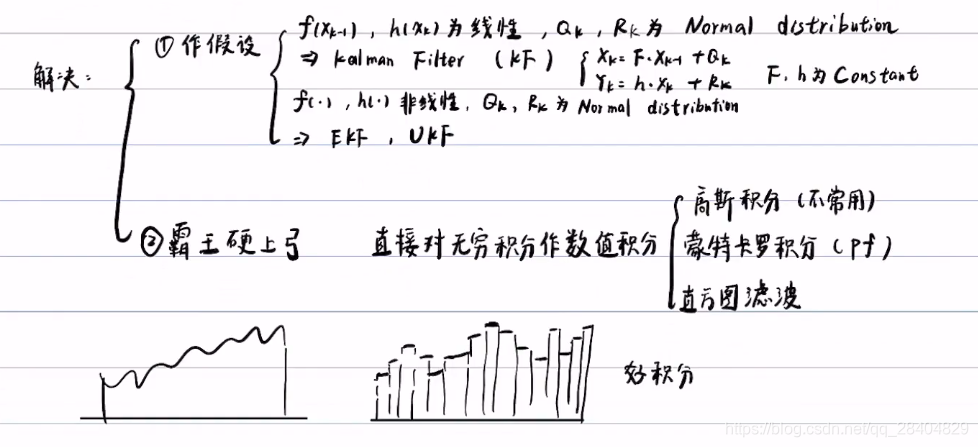 解决:
① 作假设
f(Xk-1), h(Xk)为线性, Qk, Rk 为 Normal distribution
⇒ Kalman Filter (KF) { Xk = F·Xk-1 + Qk
Yk = h·Xk + Rk
F, h 为 Constant
f(·), h(·) 非线性, Qk, Rk 为 Normal distribution
⇒ EKF, UKF
② 霸王硬上弓 直接对无穷积分作数值积分
高斯积分 (不常用)
蒙特卡罗积分 (pf)
直方图滤波
好积分
https://blog.csdn.net/qq_28404829